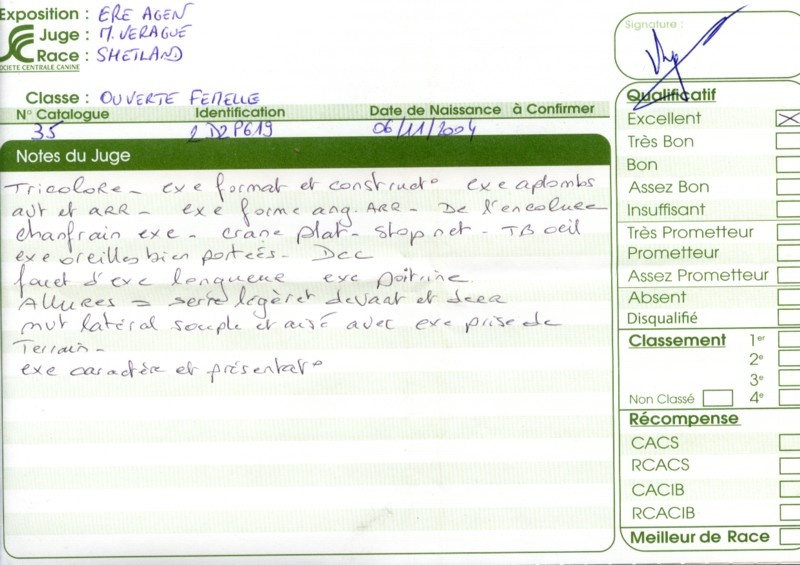 Exposition : ERE AGEN
Juge : M. VERAGUE
Race : SHETLAND
SOCIETE CENTRALE CANINE
Classe : OUVERTE FEMELLE
N° Catalogue Identification Date de Naissance à Confirmer
35 2D2P619 06/11/2004
Notes du Juge
Tricolore - exe format et construct° exe aplombs
avt et ARR - exe forme ang. ARR - De l'encolure
chanfrain exe - crane plat - stop net - TB oeil
exe oreilles bien portées - Dcc
fouet d'exe longueur exe poitrine
Allures = serre légèret devant et derr
mvt latéral souple et aisé avec exe prise de
Terrain -
exe caractère et présentat°
Signature :
Qualificatif
Excellent X
Très Bon
Bon
Assez Bon
Insuffisant
Très Prometteur
Prometteur
Assez Prometteur
Absent
Disqualifié
Classement 1er
2e
3e
Non Classé 4e
Récompense
CACS
RCACS
CACIB
RCACIB
Meilleur de Race